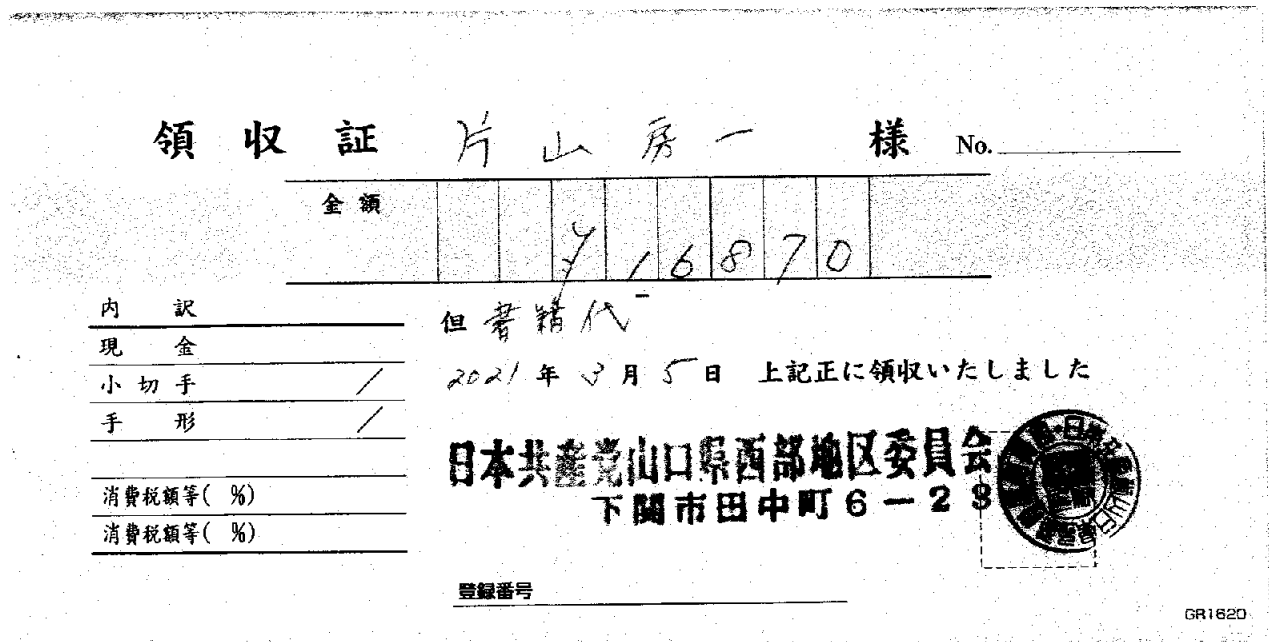 領収証 片山房一 様 No.
金額 ¥16870
内訳
現金
小切手 /
手形 /
消費税額等( %)
消費税額等( %)
但 書籍代
2021年3月5日 上記正に領収いたしました
日本共産党山口県西部地区委員会
下関市田中町6-23
登録番号
GR1620